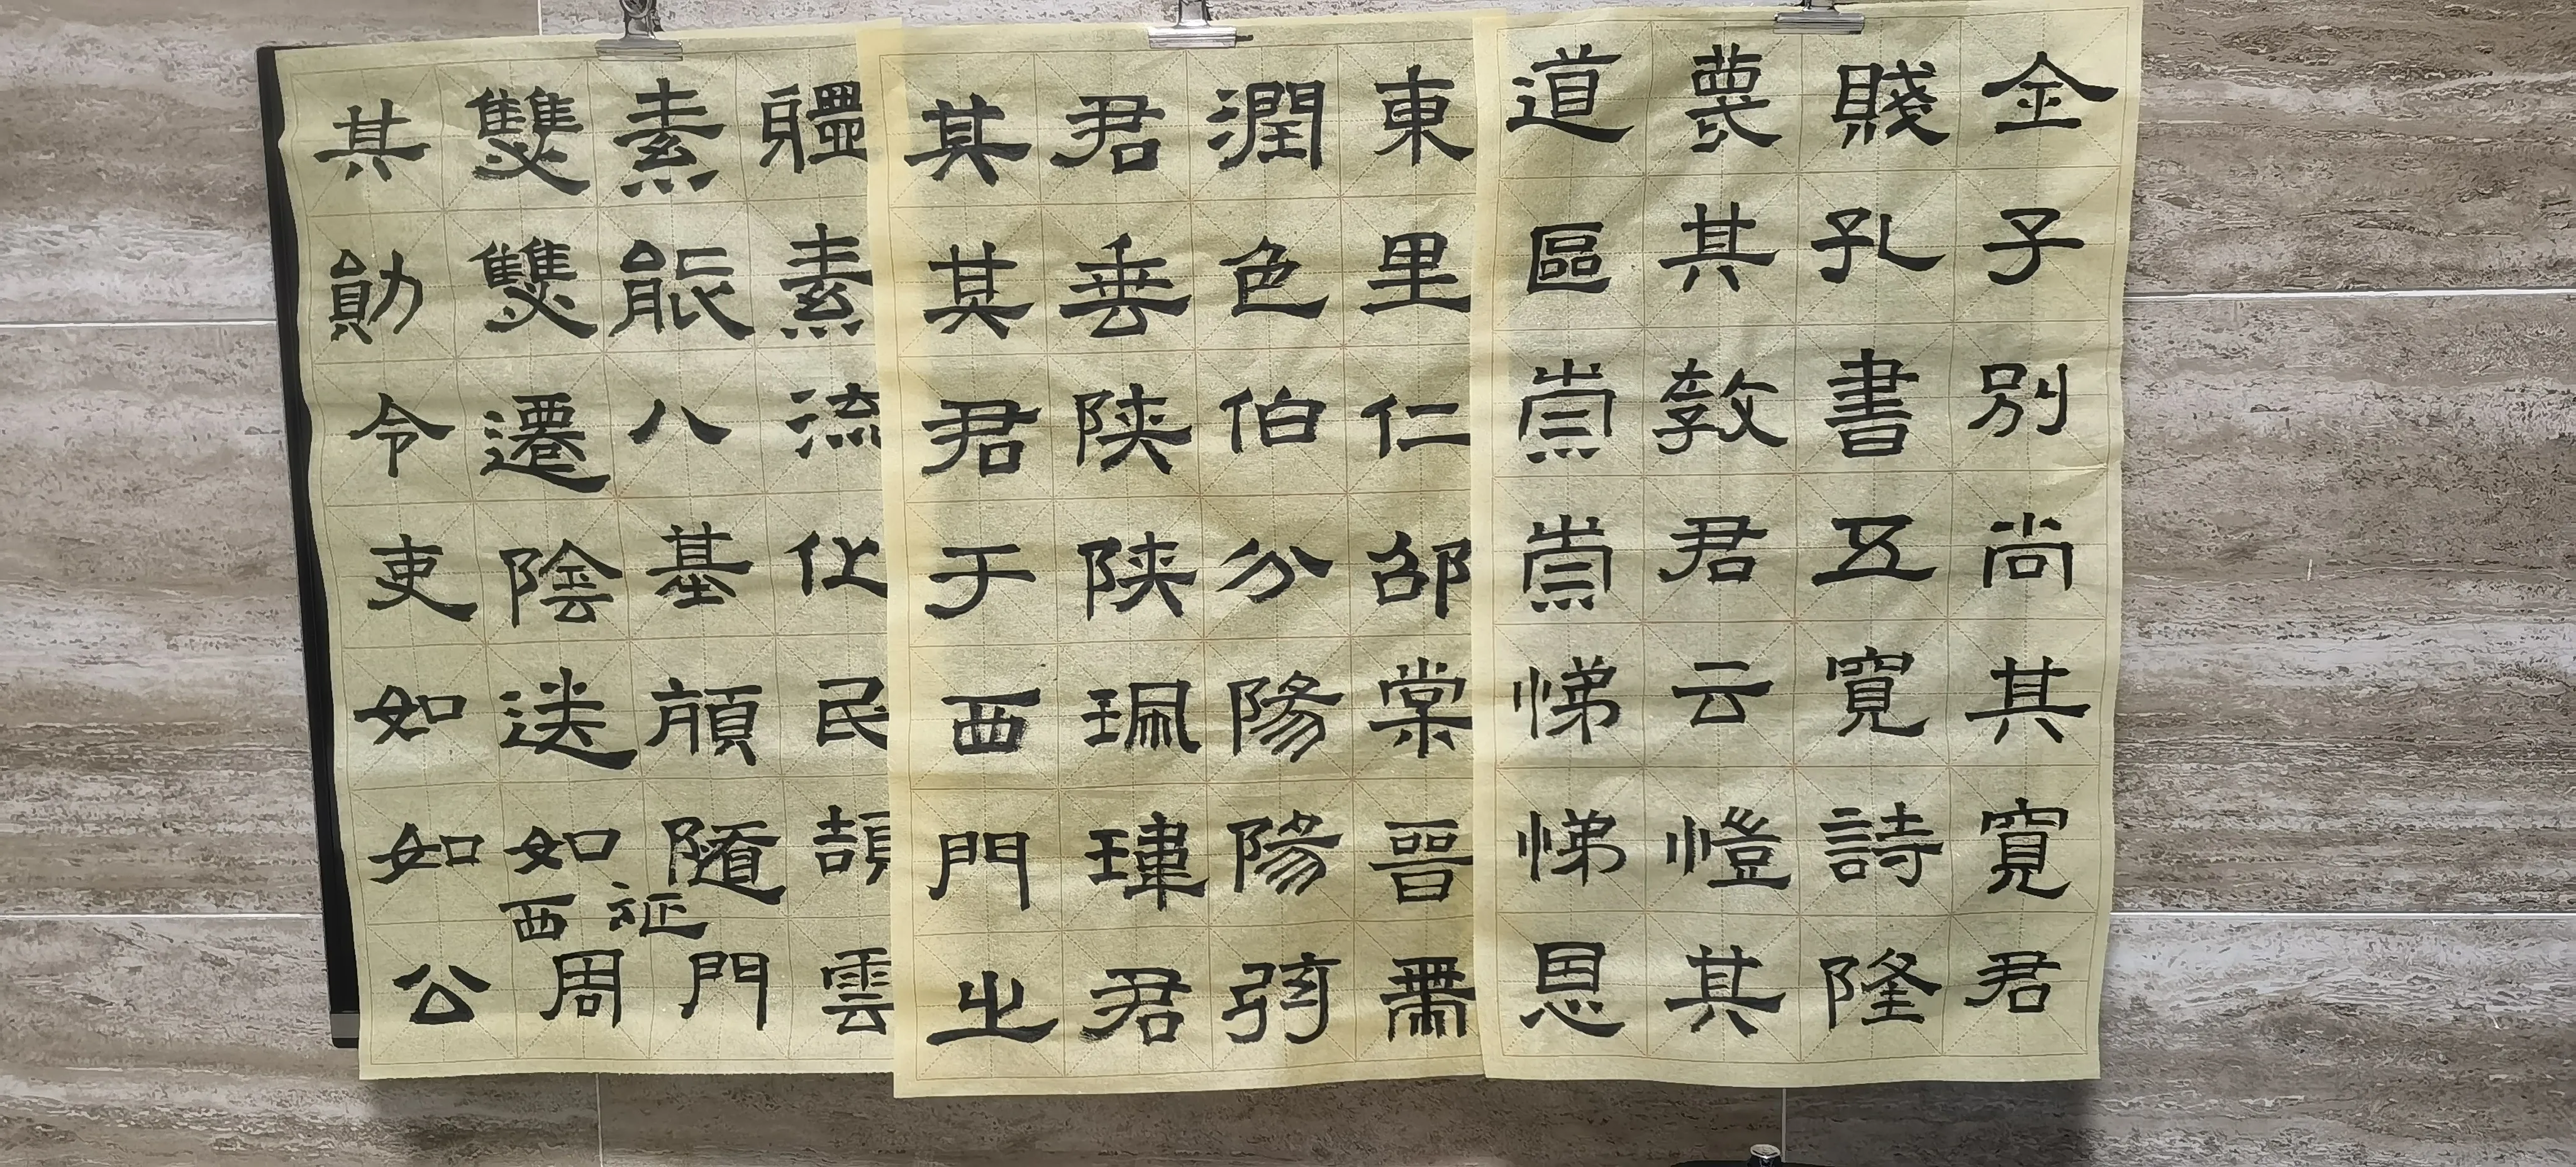 金子別尚其寬君
賤孔書五寬詩隆
其敦君云愷其
道區崇崇悌悌恩
東里仁邵棠晉肅
潤色伯分陽陽彌
君垂陝陝珮瑋君
其其君于西門之
疆素流化民頡雲
素能八基頎隨門
征
雙雙遷陰送如周
西
其勛令吏如如公